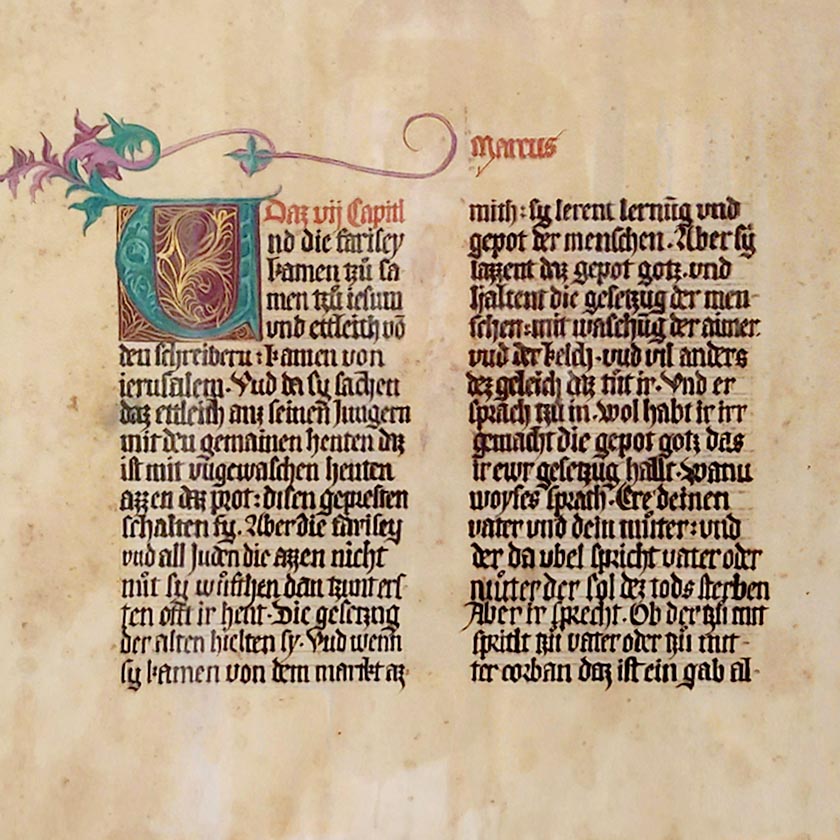 Marcus
Daz vij Capitl
Und die farisey
kamen tzů sa
men tzů iesum
vnd ettleich võ
den schreibern : kamen von
ierusalem · Vnd da sy sachen
daz ettleich auz seinen Jungern
mit den gemainen henten daz
ist mit vngewaschen henten
azzen daz prot : disen gepresten
schalten sy · Aber die farisey
vnd all Juden die azzen nicht
nůr sy wůschen dan tzunters
ten offt ir hent · Die gesetzug
der alten hielten sy · Vnd wenn
sy kamen von dem markt az
mith : sy lerent lernũg vnd
gepot der menschen · Aber sy
lazzent daz gepot gotz · vnd
haltent die gesetzug der men-
schen : mit waschũg der aimer
vnd der kelch · vnd vil anders
dez geleich daz tůt ir · Vnd er
sprach tzů in · wol habt ir irr
gemacht die gepot gotz das
ir ewr gesetzug halt · Wann
moyses sprach · Ere deinen
vater vnd dein můter : vnd
der da vbel spricht vater oder
můter der sol dez tods sterben
Aber ir sprecht · Ob der mit
spricht tzů vater oder tzů mut-
ter corban daz ist ein gab al-